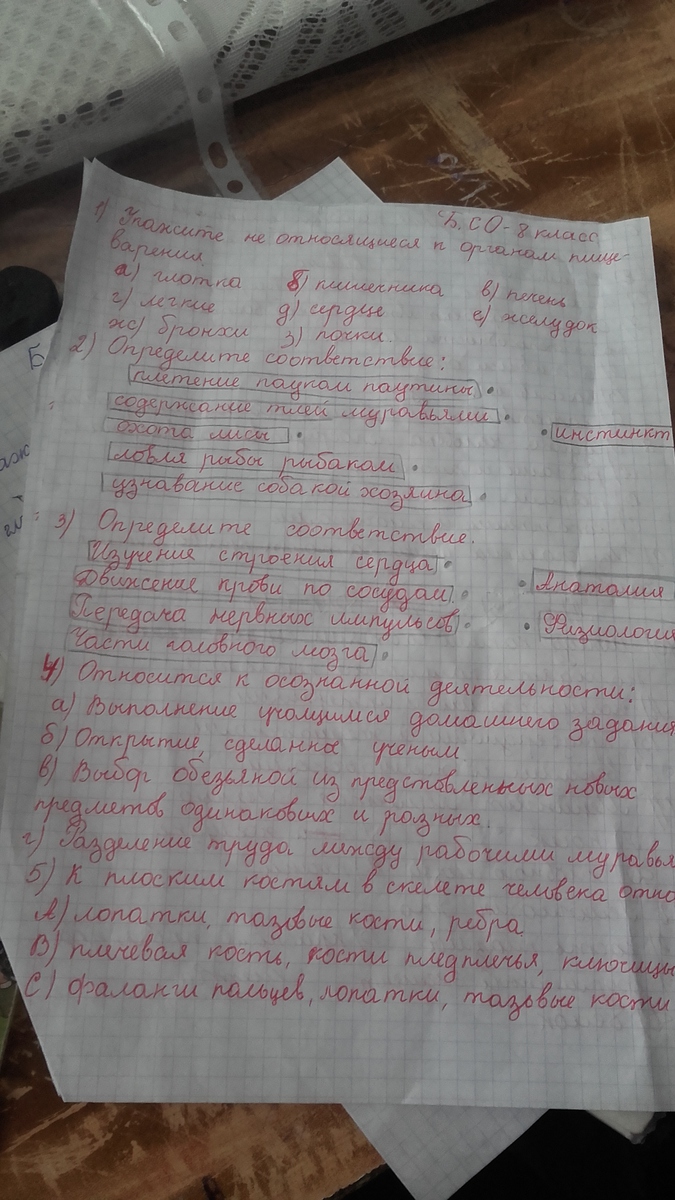 Б. СО - 8 класс
1) Укажите не относящиеся к органам пище-
варения
а) глотка б) кишечника в) печень
г) легкие д) сердце е) желудок
ж) бронхи з) почки
2) Определите соответствие:
плетение пауком паутины
содержание тлей муравьями
охота лисы инстинкт
ловля рыбы рыбаком
узнавание собакой хозяина
3) Определите соответствие.
Изучения строения сердца
Движение крови по сосудам Анатомия
Передача нервных импульсов Физиология
Части головного мозга
4) Относится к осознанной деятельности:
а) Выполнение учащимся домашнего задания
б) Открытие, сделанное ученым
в) Выбор обезьяной из представленных новых
предметов одинаковых и разных.
г) Разделение труда между рабочими муравья
5) К плоским костям в скелете человека отно
А) лопатки, тазовые кости, ребра
В) плечевая кость, кости пледплечья, ключицы
С) фаланги пальцев, лопатки, тазовые кости